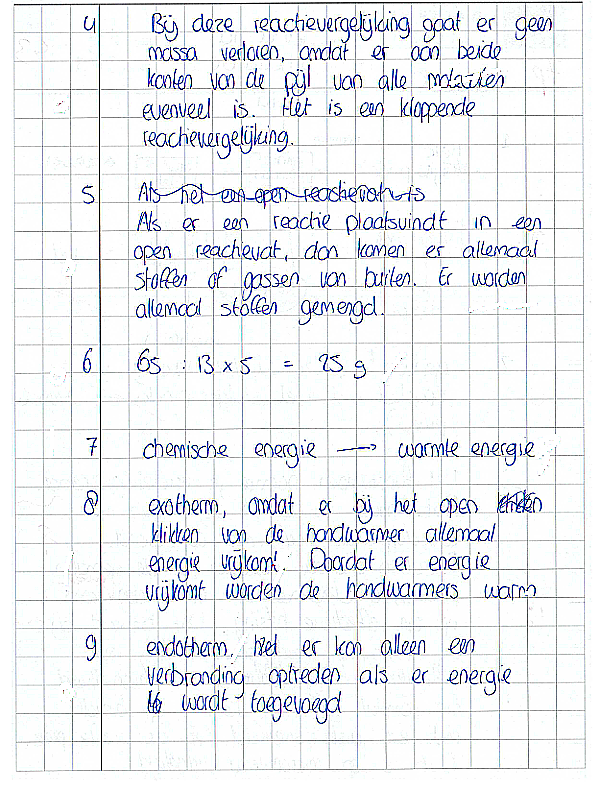 4 Bij deze reactievergelijking gaat er geen
massa verloren, omdat er aan beide
kanten van de pijl van alle
evenveel is. Het is een kloppende
reactievergelijking.
5 Als het een open reactievat is
Als er een reactie plaatsvindt in een
open reactievat, dan komen er allemaal
stoffen of gassen van buiten. Er worden
allemaal stoffen gemengd.
6 65 : 13 x 5 = 25 g
7 chemische energie → warmte energie
8 exotherm, omdat er bij het open
klikken van de handwarmer allemaal
energie vrijkomt. Doordat er energie
vrijkomt worden de handwarmers warm
9 endotherm. er kan alleen een
verbranding optreden als er energie
wordt toegevoegd